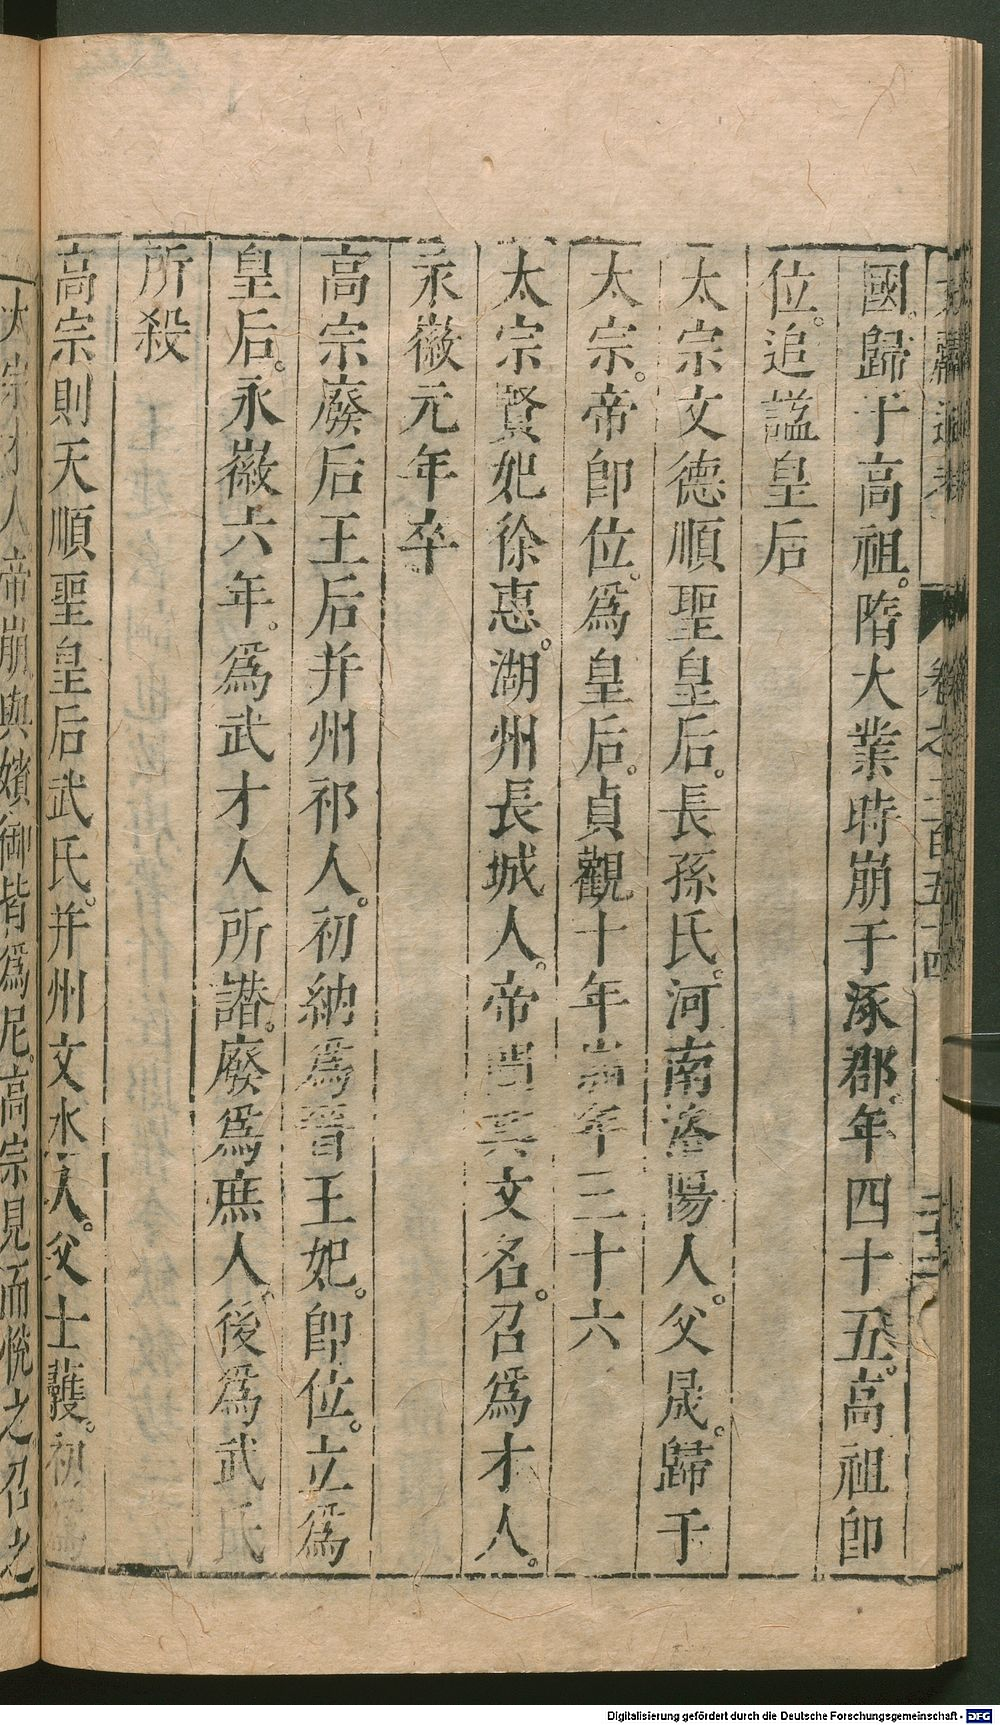 文獻通考 卷之二百五十四
國。歸于高祖。隋大業時崩于涿郡。年四十五。高祖即
位。追謚皇后
太宗文德順聖皇后。長孫氏。河南洛陽人。父晟。歸于
太宗。帝即位。爲皇后。貞觀十年崩。年三十六
太宗賢妃徐惠。湖州長城人。帝聞其文名。召爲才人。
永徽元年卒
高宗廢后王后并州祁人。初納爲晋王妃。即位。立爲
皇后。永徽六年。爲武才人所譖。廢爲庶人。後爲武氏
所殺
高宗則天順聖皇后武氏。并州文水人。父士彠。初爲
太宗才人帝崩與嬪御皆爲尼。高宗見而悅之召之
Digitalisierung gefördert durch die Deutsche Forschungsgemeinschaft - DFG